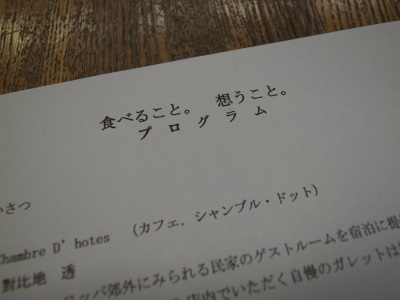 食べること。 想うこと。
プログラム
いさつ
Chambre D'hotes (カフェ.シャンブル・ドット)
對比地 透
ロッパ郊外にみられる民家のゲストルームを宿泊に提
店内でいただく自慢のガレットは